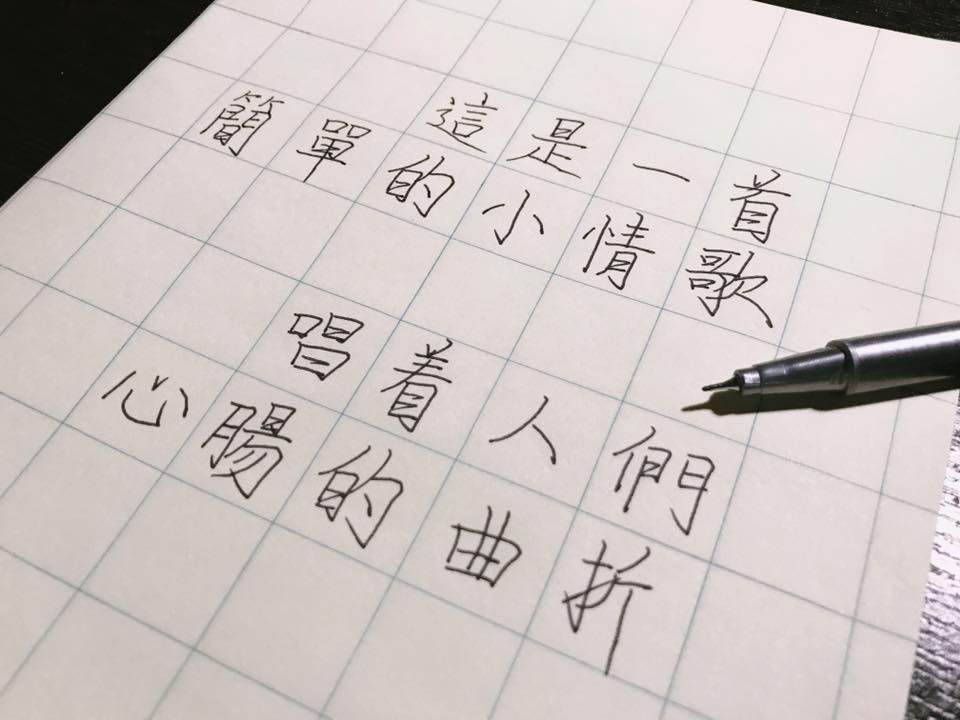 這是一首
簡單的小情歌
唱着人們
心腸的曲折